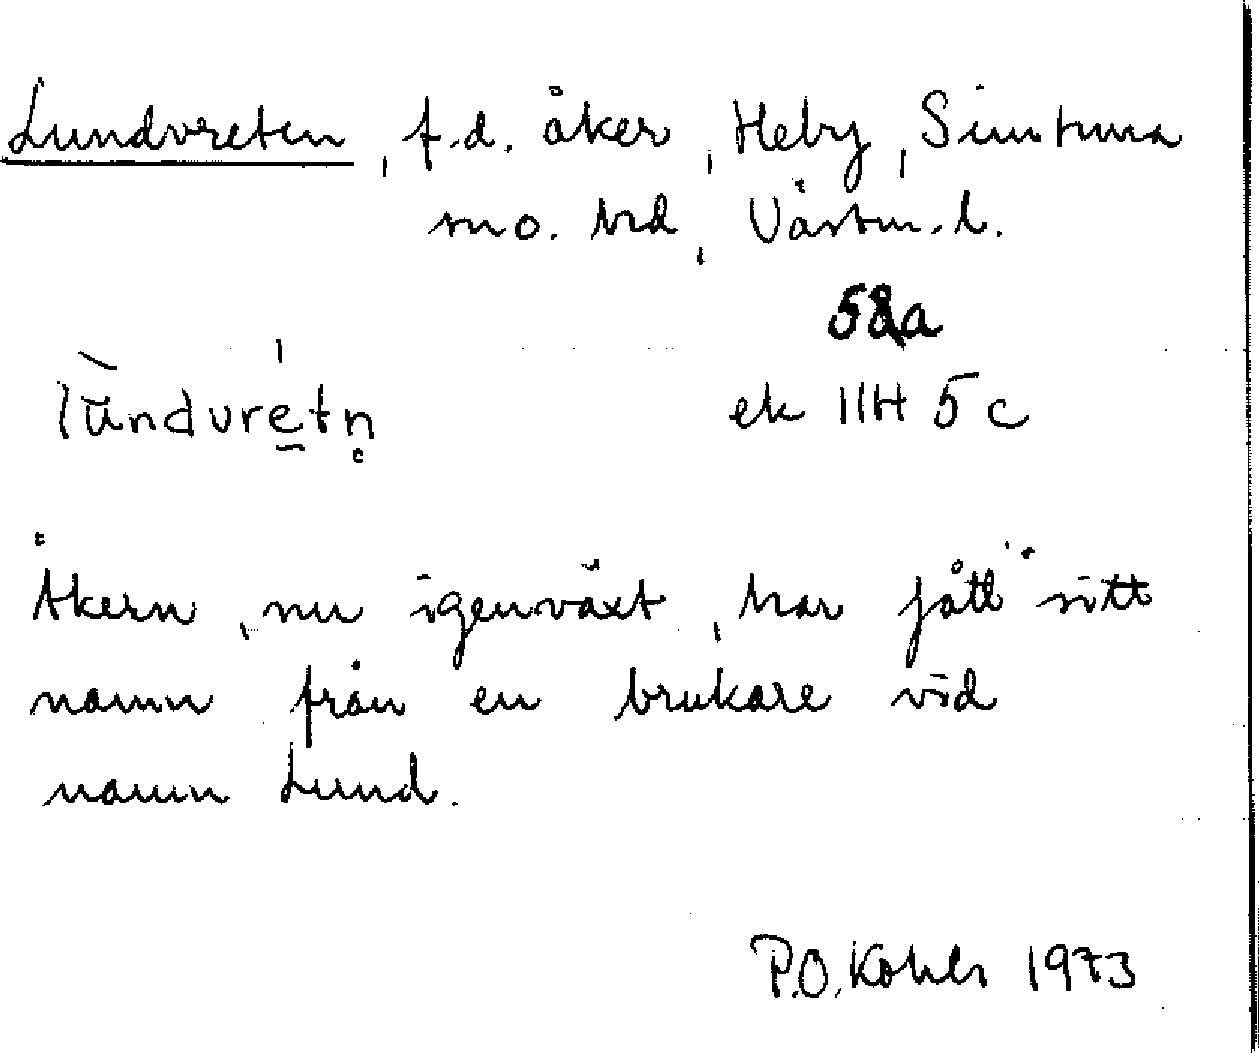 Lundvreten, f.d. åker, Heby, Simtuna
sn o. hd, Västm. l.
58a
lùndvre̲tn̥
ek 11H 5c
Åkern, nu igenväxt, har fått sitt
namn från en brukare vid
namn Lund.
P.O. Kohls 1973